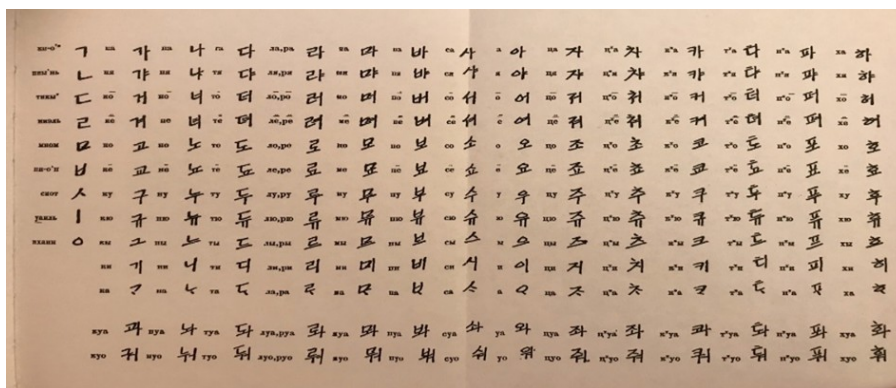 ㄱ ка 가 на 나 та 다 ла,ра 라 ма 마 па 바 са 사 а 아 ца 자 ц'а 차 к'а 카 т'а 타 п'а 파 ха 하
ㄴ кя 갸 ня 냐 тя 댜 ля,ря 랴 мя 먀 пя 뱌 ся 샤 я 야 ця 쟈 ц'я 챠 к'я 캬 т'я 탸 п'я 퍄 хя 햐
ㄷ ко̄ 거 но̄ 너 то̄ 더 ло̄,ро̄ 러 мо̄ 머 по̄ 버 со̄ 서 о̄ 어 цо̄ 저 ц'о̄ 처 к'о̄ 커 т'о̄ 터 п'о̄ 퍼 хо̄ 허
ㄹ ке̄ 겨 не̄ 녀 те̄ 뎌 ле̄,ре̄ 려 ме̄ 며 пе̄ 벼 се̄ 셔 е̄ 여 це̄ 져 ц'е̄ 쳐 к'е̄ 켜 т'е̄ 텨 п'е̄ 펴 хе̄ 혀
миом ㅁ ко 고 но 노 то 도 ло,ро 로 мо 모 по 보 со 소 о 오 цо 조 ц'о 초 к'о 코 т'о 토 п'о 포 хо 호
пи-о'п ㅂ кё 교 нё 뇨 тё 됴 лё,рё 료 мё 묘 пё 뵤 сё 쇼 ё 요 цё 죠 ц'ё 쵸 к'ё 쿄 т'ё 툐 п'ё 표 хё 효
сиот ㅅ ку 구 ну 누 ту 두 лу,ру 루 му 무 пу 부 су 수 у 우 цу 주 ц'у 추 к'у 쿠 т'у 투 п'у 푸 ху 후
ㅣ кю 규 ню 뉴 тю 듀 лю,рю 류 мю 뮤 пю 뷰 сю 슈 ю 유 цю 쥬 ц'ю 츄 к'ю 큐 т'ю 튜 п'ю 퓨 хю 휴
ㅇ кы 그 ны 느 ты 드 лы,ры 르 мы 므 пы 브 сы 스 ы 으 цы 즈 ц'ы 츠 к'ы 크 т'ы 트 п'ы 프 хы 흐
ки 기 ни 니 ти 디 ли,ри 리 ми 미 пи 비 си 시 и 이 ци 지 ц'и 치 к'и 키 т'и 티 п'и 피 хи 히
ка ᄀᆞ на ᄂᆞ та ᄃᆞ ла,ра ᄅᆞ ма ᄆᆞ па ᄇᆞ са ᄉᆞ а ᄋᆞ ца ᄌᆞ ц'а ᄎᆞ к'а ᄏᆞ т'а ᄐᆞ п'а ᄑᆞ ха ᄒᆞ
куа 과 нуа 놔 туа 돠 луа,руа 롸 муа 뫄 пуа 봐 суа 솨 уа 와 цуа 좌 ц'уа 촤 к'уа 콰 т'уа 톼 п'уа 퐈 хуа 화
куо 궈 нуо 눠 туо 둬 луо,руо 뤄 муо 뭐 пуо 붜 суо 숴 уо 워 цуо 줘 ц'уо 춰 к'уо 쿼 т'уо 퉈 п'уо 풔 хуо 훠